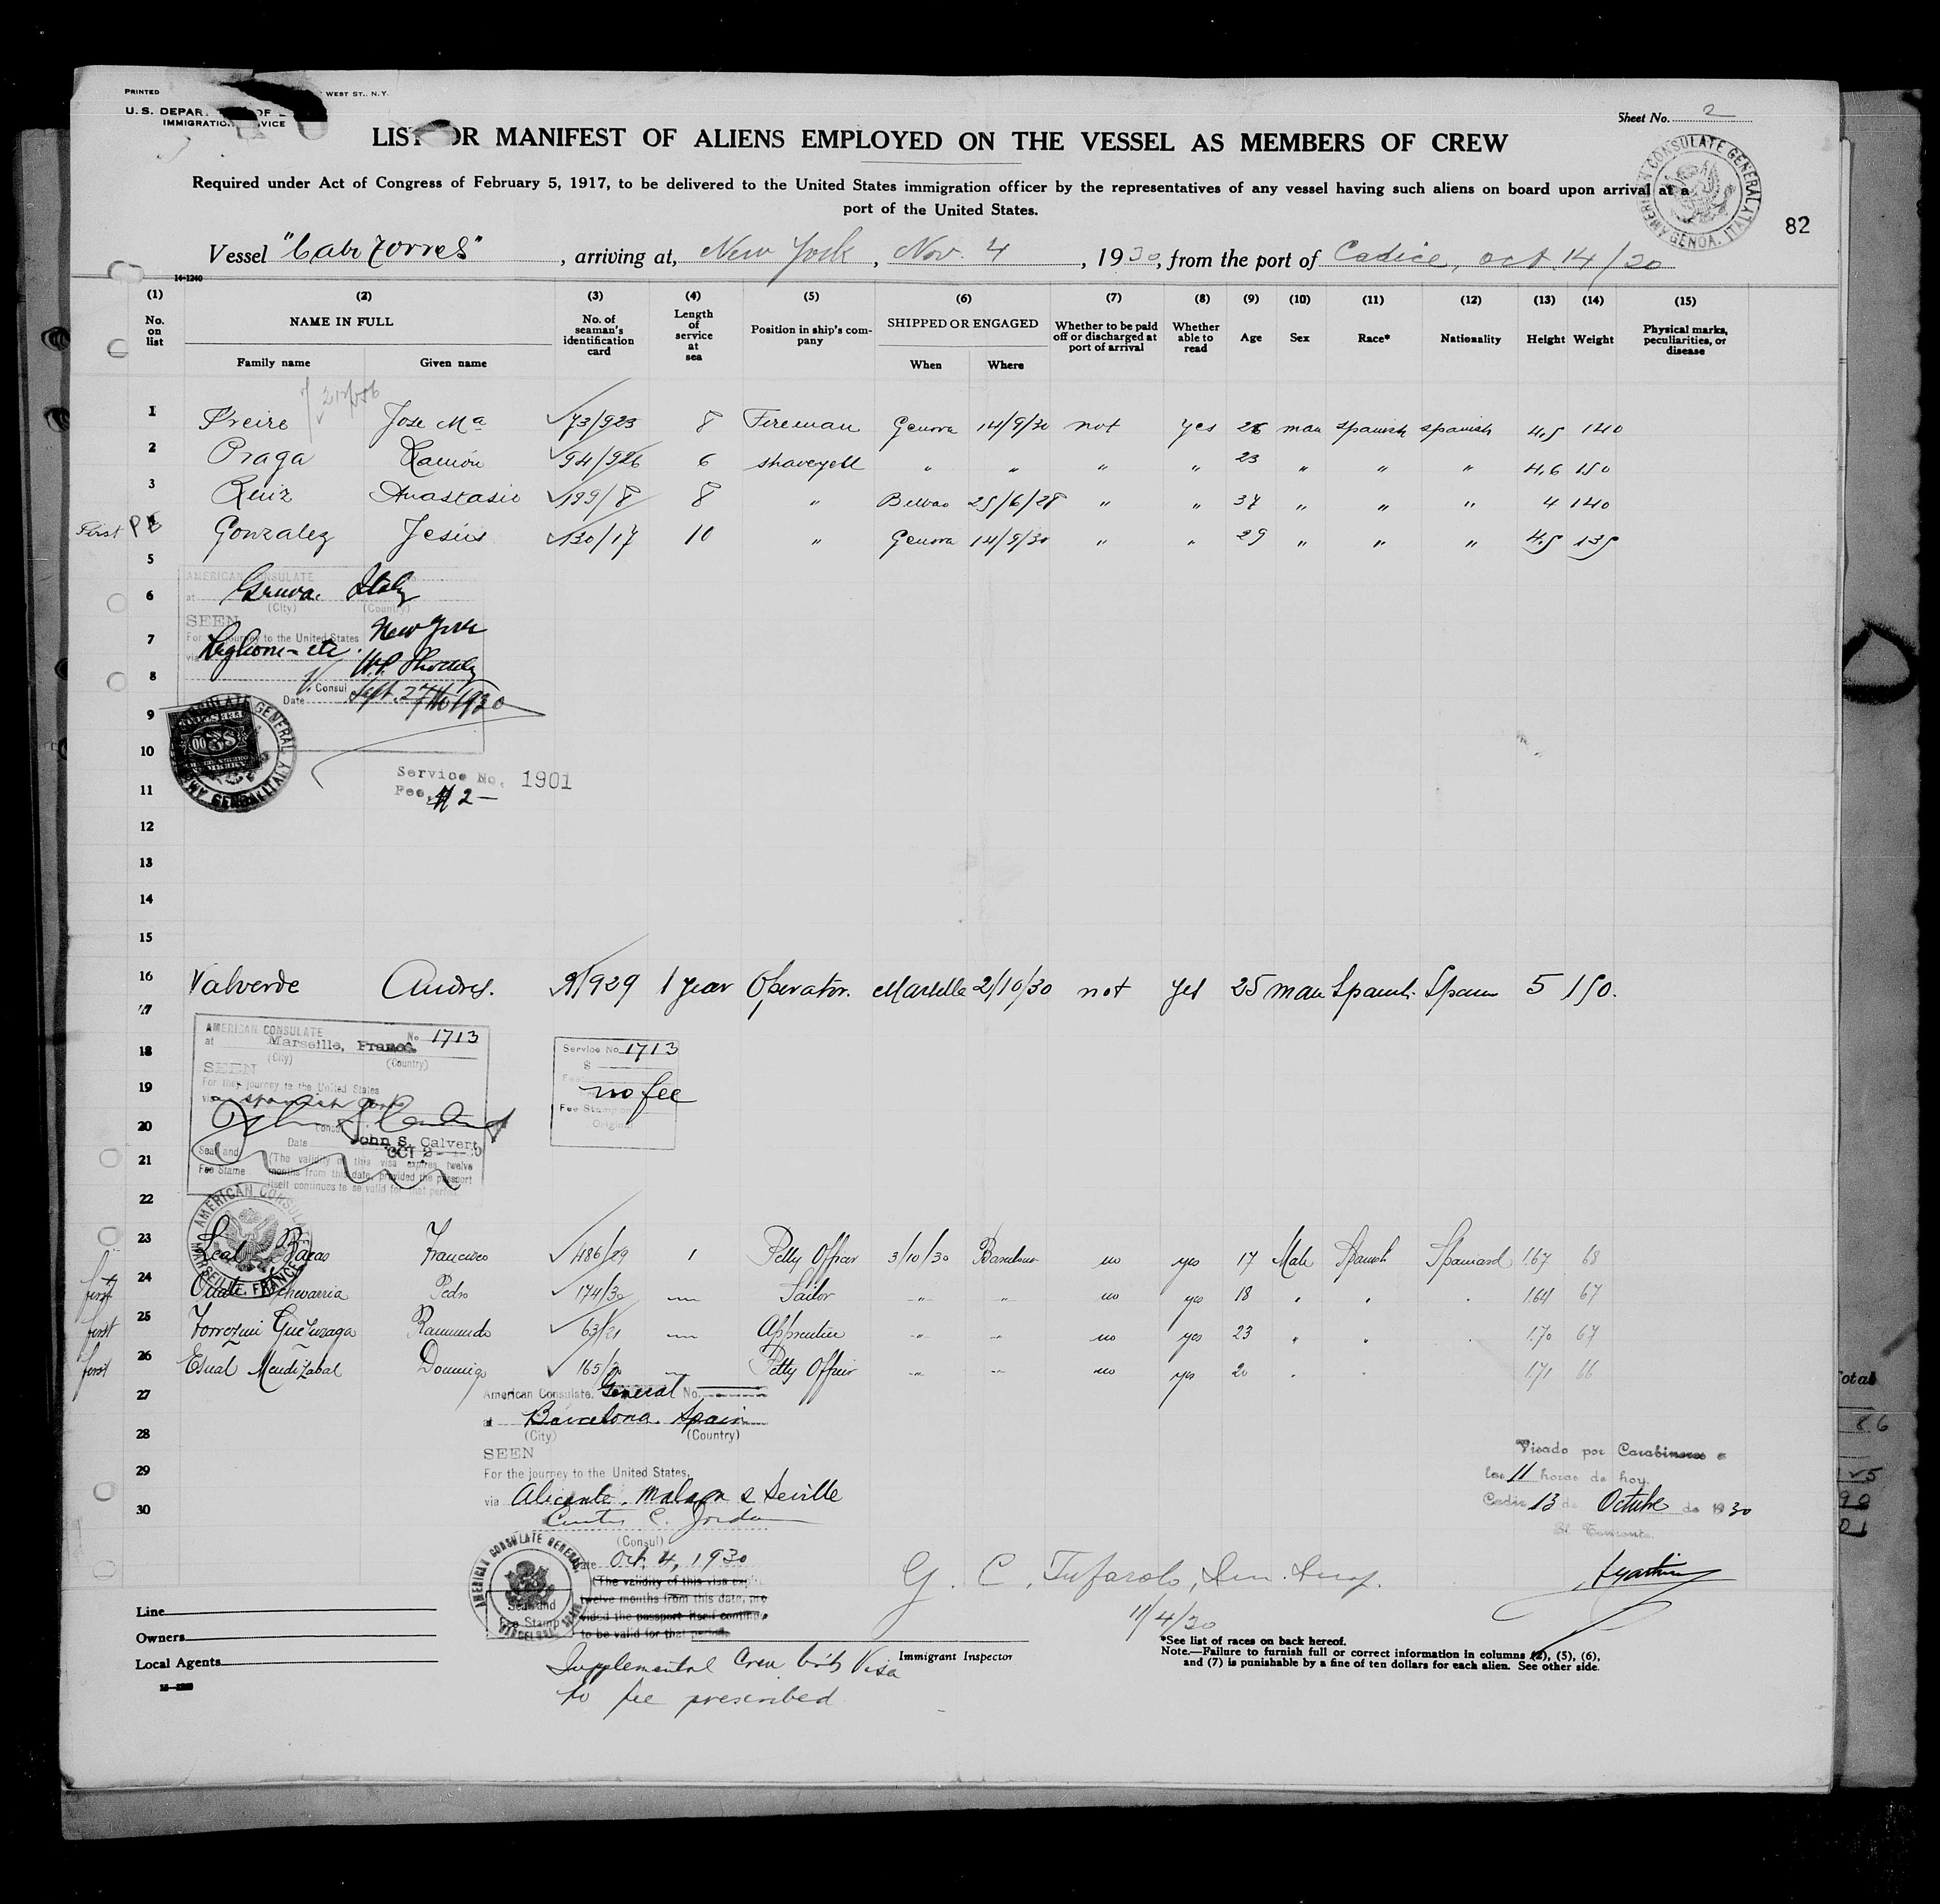 PRINTED WEST ST., N.Y.
U.S. DEPAR OF
IMMIGRATIO VICE
Sheet No. 2
LIST OR MANIFEST OF ALIENS EMPLOYED ON THE VESSEL AS MEMBERS OF CREW
Required under Act of Congress of February 5, 1917, to be delivered to the United States immigration officer by the representatives of any vessel having such aliens on board upon arrival at a
port of the United States.
AMERICAN CONSULATE GENERAL GENOA, ITALY
82
Vessel "Cabo Torres", arriving at, New York, Nov. 4, 1930, from the port of Cadice, oct. 14/30
14-1240
(1) (2) (3) (4) (5) (6) (7) (8) (9) (10) (11) (12) (13) (14) (15)
No. on list NAME IN FULL Family name Given name No. of seaman's identification card Length of service at sea Position in ship's company SHIPPED OR ENGAGED When Where Whether to be paid off or discharged at port of arrival Whether able to read Age Sex Race* Nationality Height Weight Physical marks, peculiarities, or disease
1 Freire Jose Mª 73/923 8 Fireman Genova 14/9/30 not yes 26 man spanish spanish 4,5 140
2 Praga Ramón 94/926 6 " " " " 23 " " " 4,6 150
3 Ruiz Anastasio 199/8 8 " Bilbao 25/6/28 " " 37 " " " 4 140
First 4 Gonzalez Jesús 130/17 10 " Genova 14/9/30 " " 29 " " " 4,5 135
5
AMERICAN CONSULATE
6 at Genova. Italy
(City) (Country)
SEEN
7 For the journey to the United States New York
via
8
Consul
Date Sept. 27th 1930
9
10
AMERICAN CONSULATE GENERAL GENOA ITALY
Service No. 1901
11 Fee, $2-
12
13
14
15
16 Valverde Andres. 21/929 1 year Operator. Marselle 2/10/30 not yes 25 man Spanish. Spain 5 150.
17
AMERICAN CONSULATE No 1713
at Marseille, France.
18 (City) (Country)
Service No. 1713
SEEN
$
19 For the journey to the United States
no fee
via spanish ports
Fee Stamp on
20 Consul
Original
Date John S. Calvert
OCT 2-
21 Seal and (The validity of this visa expires twelve
Fee Stamp months from this date, provided the passport
itself continues to be valid for that period.
22
AMERICAN CONSULATE MARSEILLE, FRANCE
23 Leal Francisco 486/29 1 Petty Officer 3/10/30 Barcelona no yes 17 Male Spanish Spaniard 1.67 68
first 24 Echevarria Pedro 174/30 — Sailor " " no yes 18 " " " 1.64 67
first 25 Raimundo 63/21 — Apprentice " " no yes 23 " " " 1.70 67
first 26 Mendizabal Domingo 165/ — Petty Officer " " no yes 20 " " " 1.71 66
27 American Consulate General No.
at Barcelona. Spain
28 (City) (Country)
SEEN
29 For the journey to the United States,
via Alicante, Malaga & Seville
30 Curtis C. Jordan
(Consul)
Date Oct. 4, 1930
(The validity of this visa expires
twelve months from this date, pro
vided the passport itself continues
to be valid for that period.
Seal and
Fee Stamp
AMERICAN CONSULATE GENERAL BARCELONA, SPAIN
Visado por Carabineros a
las 11 horas de hoy.
Cadiz 13 de Octubre de 1930
El Teniente.
G. C. Tufarolo, Imm. Insp.
11/4/30
Line
Owners
Local Agents
Immigrant Inspector
*See list of races on back hereof.
Note.—Failure to furnish full or correct information in columns (2), (5), (6),
and (7) is punishable by a fine of ten dollars for each alien. See other side.
Supplemental Crew list Visa
No fee prescribed
Total
86